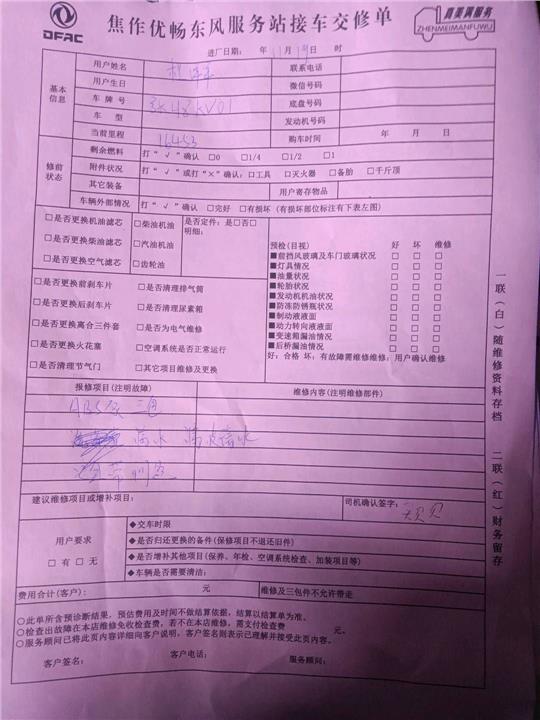 DFAC
焦作优畅东风服务站接车交修单
真美满服务
ZHENMEIMANFUWU
进厂日期: 年 11月 19日 时
基本信息
用户姓名
联系电话
用户生日
微信号码
车牌号
底盘号码
车型
发动机号码
当前里程 16453
购车时间 年 月 日
修前状态
剩余燃料 打“√”确认 □0 □1/4 □1/2 □1
附件状况 打“√”或打“×”确认:□工具 □灭火器 □备胎 □千斤顶
其它装备
用户寄存物品
车辆外部情况 打“√”确认 □完好 □有损坏(有损坏部位标注有下表左图)
□是否更换机油滤芯
□柴油机油
是否定件:是□否□
□是否更换柴油滤芯
□汽油机油
明细:
□是否更换空气滤芯
□齿轮油
□是否更换前刹车片
□是否清理排气筒
□是否更换后刹车片
□是否清理尿素箱
□是否更换离合三件套
□是否为电气维修
□是否更换火花塞
□空调系统是否正常运行
□是否清理节气门
□其它项目维修及更换
预检(目视) 好 坏 维修
■前挡风玻璃及车门玻璃状况 □ □ □
■灯具情况 □ □ □
■油量状况 □ □ □
■轮胎状况 □ □ □
■发动机机油状况 □ □ □
■防冻防锈瓶状况 □ □ □
■制动液液面 □ □ □
■动力转向液液面 □ □ □
■变速箱漏油情况 □ □ □
■后桥漏油情况 □ □ □
好:合格 坏:有故障需维修维修:用户确认维修
报修项目(注明故障)
维修内容(注明维修部件)
建议维修项目或增补项目:
司机确认签字:
用户要求
□有 □无
◆交车时限
◆是否归还更换的备件(保修项目不退还旧件)
◆是否增补其他项目(保养、年检、空调系统检查、加装项目等)
◆车辆是否需要清洁:
费用合计(客户): 元
维修及三包件不允许带走
○此单所含预诊断结果,预估费用及时间不做结算依据,结算以结算单为准。
○检查出故障在本店维修免收检查费,若不在本店维修,需支付检查费 元。
○服务顾问已将此页内容详细向客户说明,客户签名则表示已理解并接受此页内容。
客户签名:
客户电话:
服务顾问:
一联(白)随维修资料存档 二联(红)财务留存